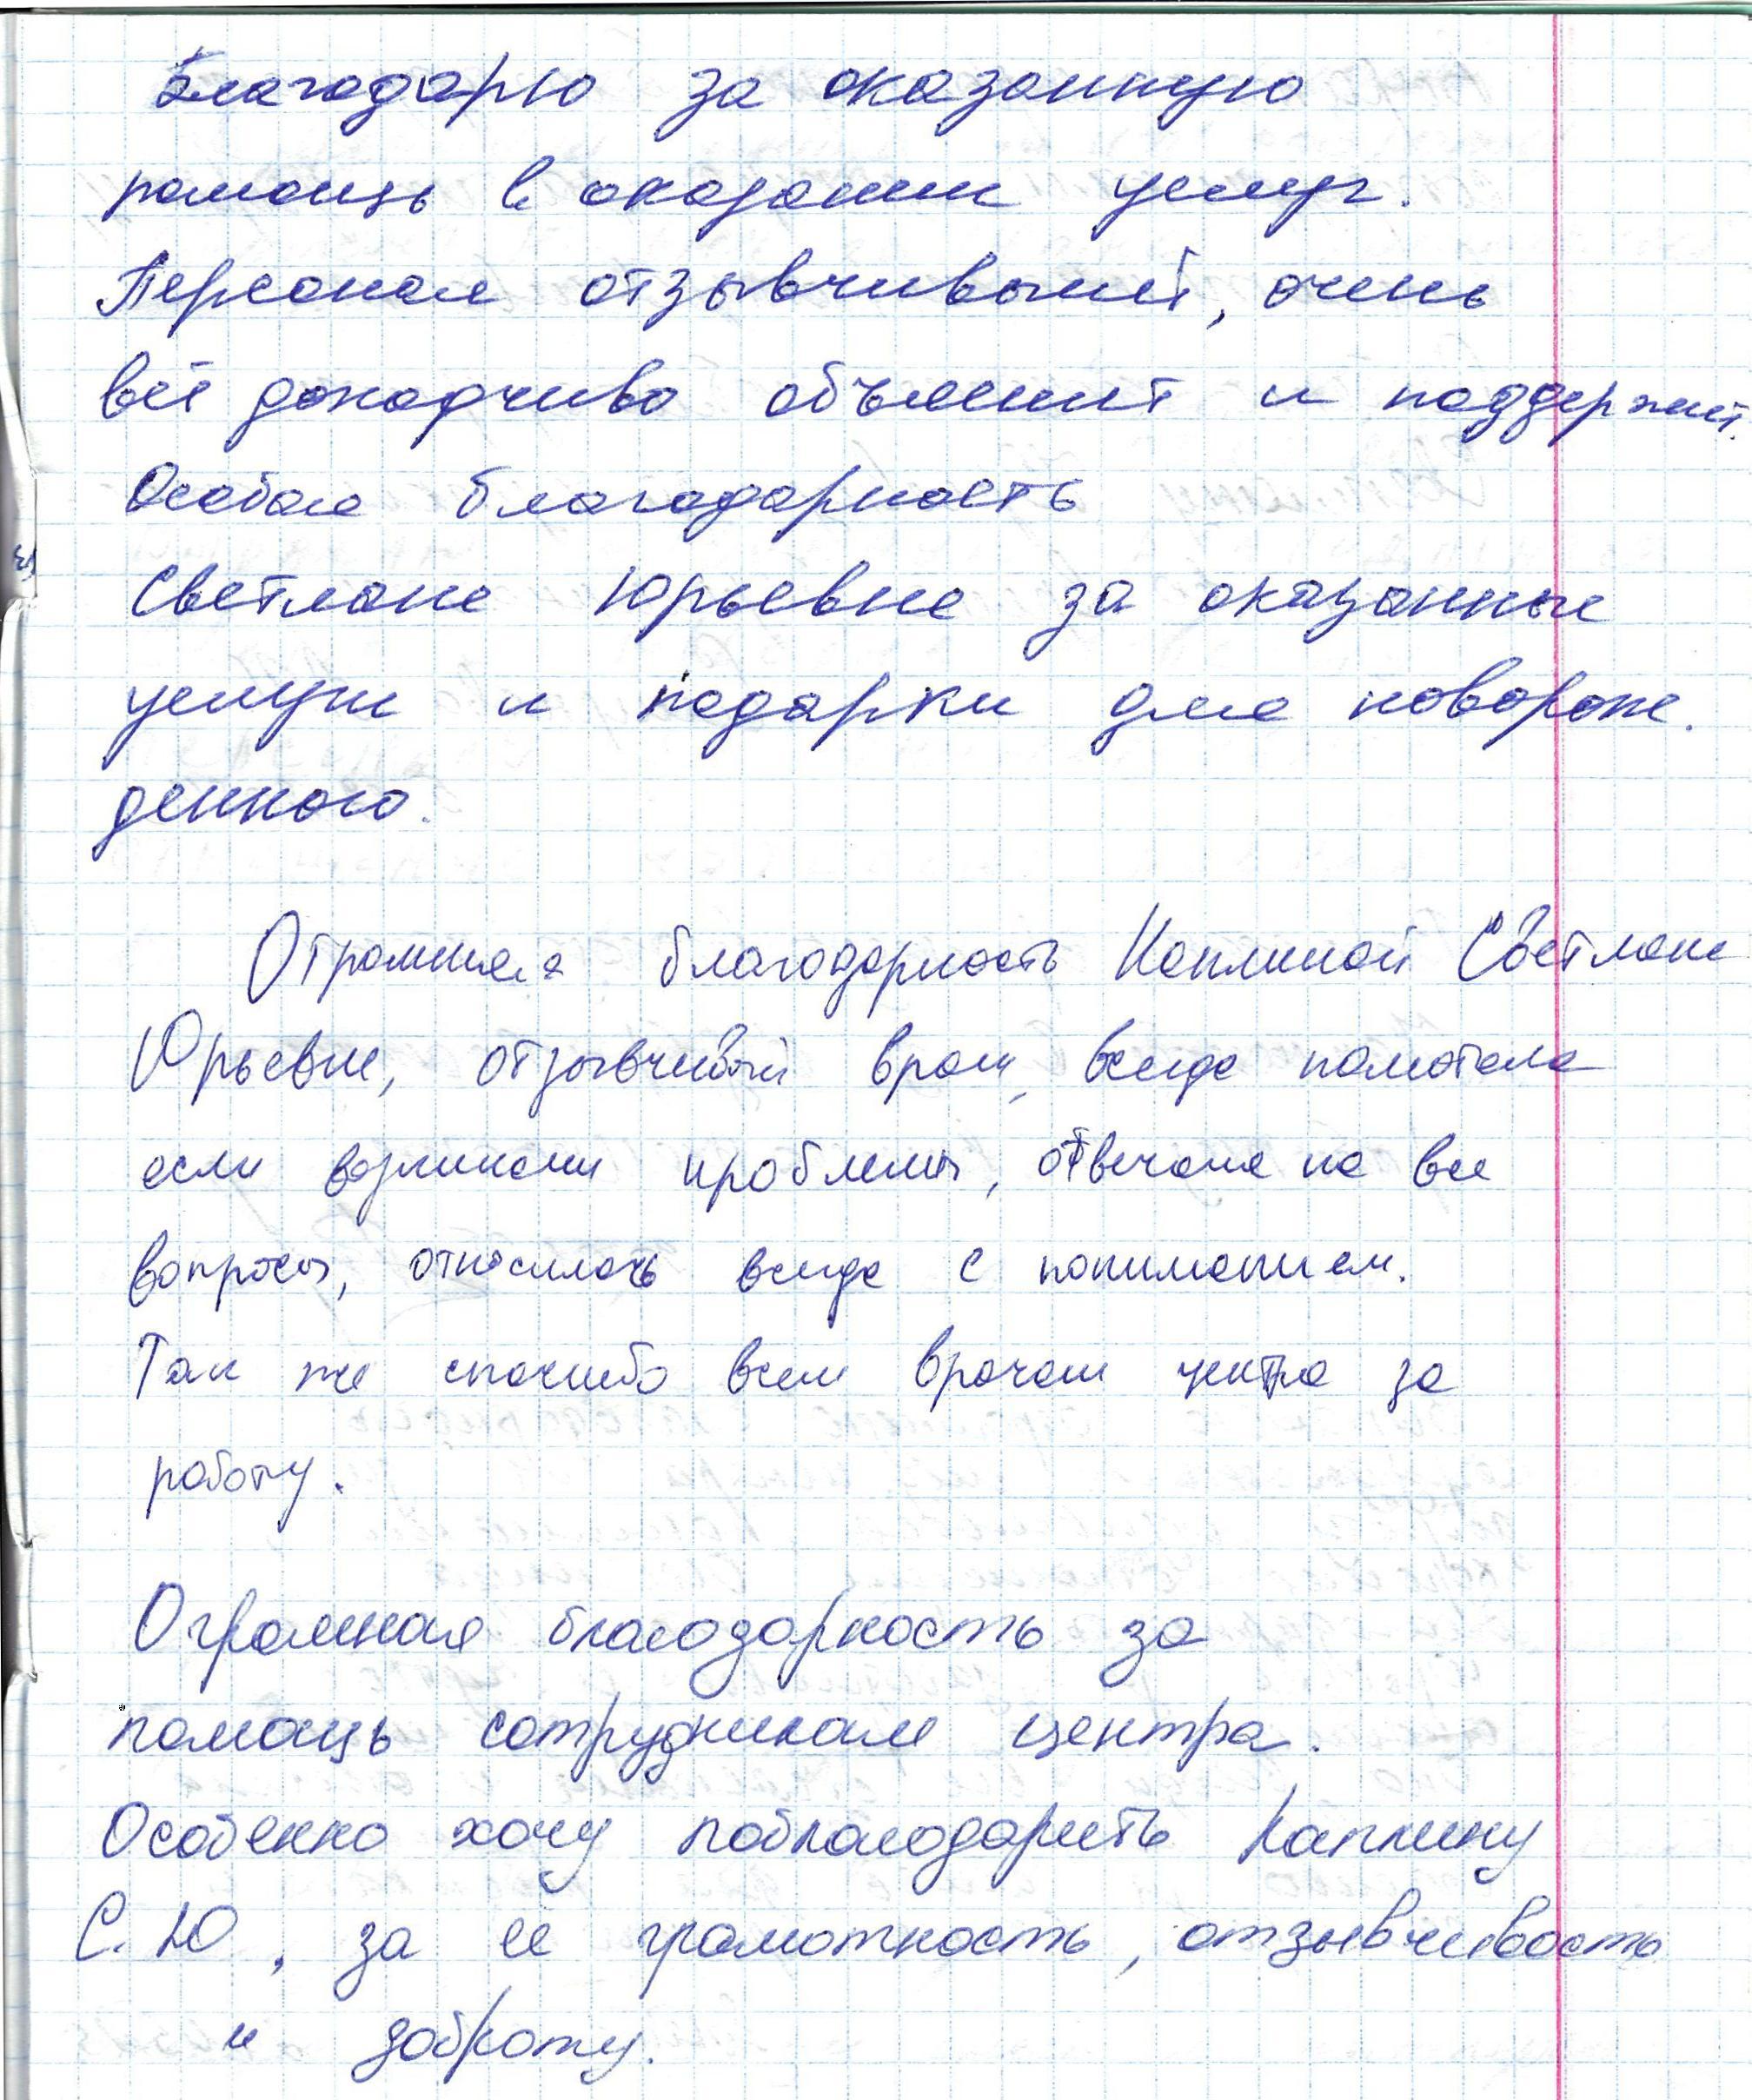 Благодарю за оказанную
помощь в оказании услуг.
Персонал отзывчивый, очень
всё доходчиво объяснит и поддержит.
Особая благодарность
Светлане Юрьевне за оказанные
услуги и подарки для новорож.
денного.
Огромная благодарность Каплиной Светлане
Юрьевне, отзывчивый врач, всегда помогала
если возникали проблемы, отвечала на все
вопросы, относилась всегда с пониманием.
Так же спасибо всем врачам центра за
работу.
Огромная благодарность за
помощь сотрудникам центра.
Особенно хочу поблагодарить Каплину
С.Ю, за её грамотность, отзывчивость
и доброту.